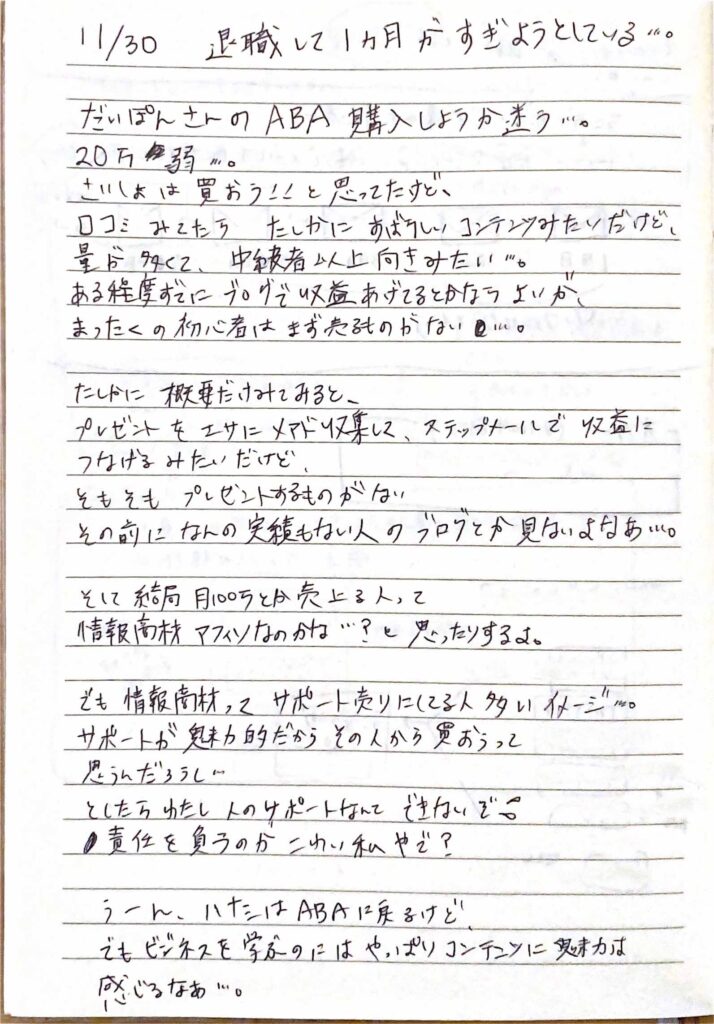 11/30 退職して1ヵ月がすぎようとしている…。
だいぽんさんの ABA 購入しようか迷う…。
20万弱…。
さいしょは買おう!!と思ってたけど、
口コミみてたら たしかに すばらしいコンテンツみたいだけど、
量が多くて、中級者以上向きみたい…。
ある程度すでにブログで収益あげてるとかならよいが、
まったくの初心者はまず売るものがない…。
たしかに概要だけみてみると、
プレゼントをエサにメアド収集して、ステップメールで収益に
つなげるみたいだけど、
そもそもプレゼントするものがない
その前になんの実績もない人のブログとか見ないよなあ…。
そして結局月100万とか売上る人って
情報商材アフィリなのかな…?と思ったりするよ。
でも情報商材ってサポート売りにしてる人多いイメージ…。
サポートが魅力的だからその人から買おうって
思うんだろうし…
としたらわたし人のサポートなんてできないぞ
責任を負うのがこわい私やで?
うーん、ハナシはABAに戻るけど、
でもビジネスを学ぶのにはやっぱりコンテンツに魅力は
感じるなぁ…。